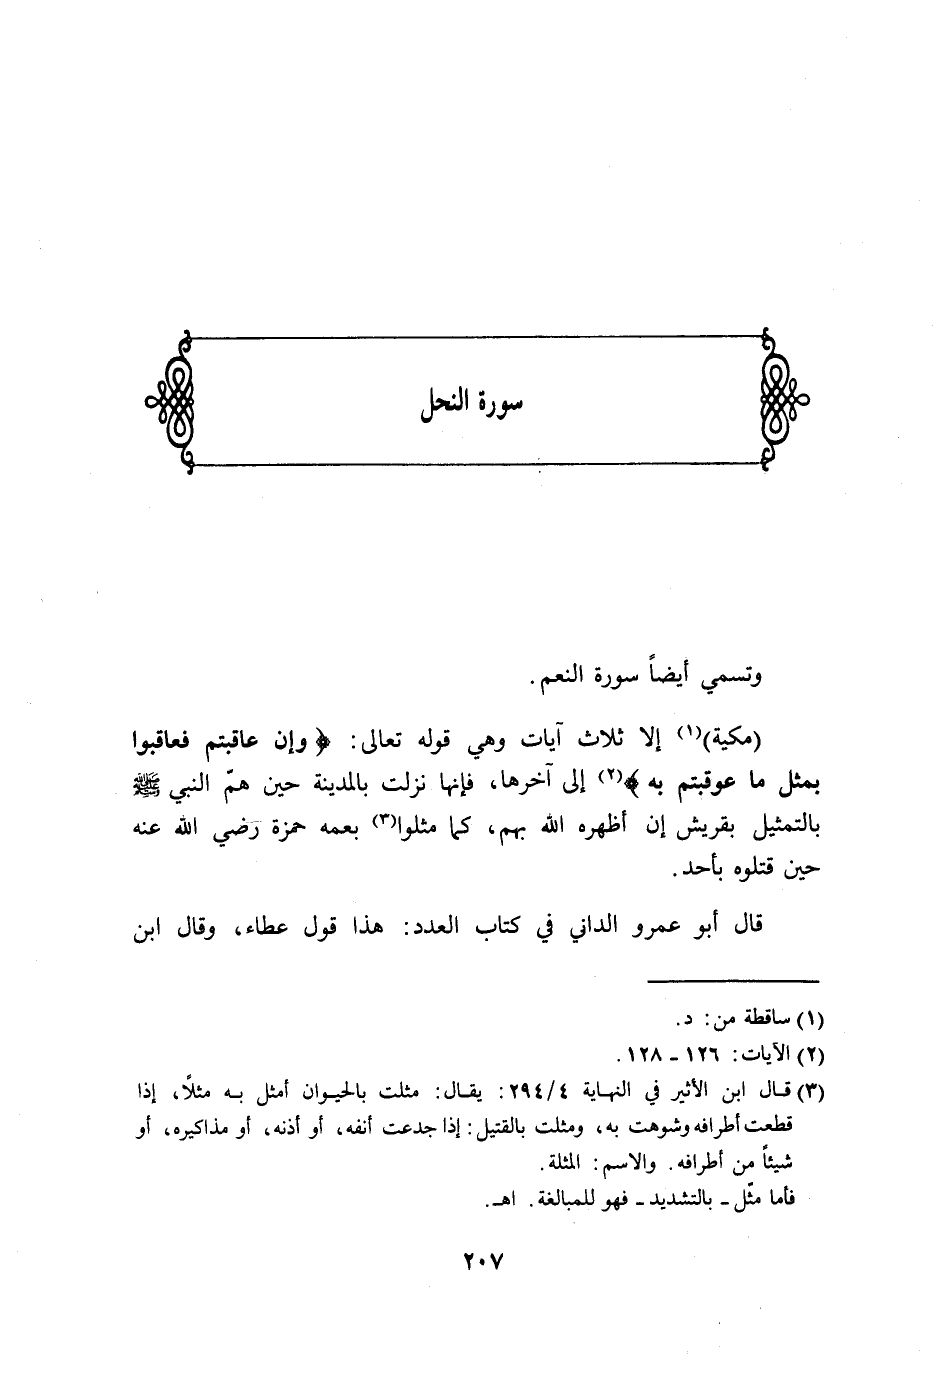 سورة النحل
وتسمي أيضاً سورة النعم.
(مكية)(١) إلا ثلاث آيات وهي قوله تعالى: ﴿ وإن عاقبتم فعاقبوا
بمثل ما عوقبتم به ﴾(٢) إلى آخرها، فإنها نزلت بالمدينة حين همّ النبي ﷺ
بالتمثيل بقريش إن أظهره الله بهم، كما مثلوا(٣) بعمه حمزة رضي الله عنه
حين قتلوه بأحد.
قال أبو عمرو الداني في كتاب العدد: هذا قول عطاء، وقال ابن
(١) ساقطة من: د.
(٢) الآيات: ١٢٦ ـ ١٢٨.
(٣) قال ابن الأثير في النهاية ٢٩٤/٤: يقال: مثلت بالحيوان أمثل به مثلاً، إذا
قطعت أطرافه وشوهت به، ومثلت بالقتيل: إذا جدعت أنفه، أو أذنه، أو مذاكيره، أو
شيئاً من أطرافه. والاسم: المثلة.
فأما مثّل ـ بالتشديد ـ فهو للمبالغة. اهـ.
٢٠٧